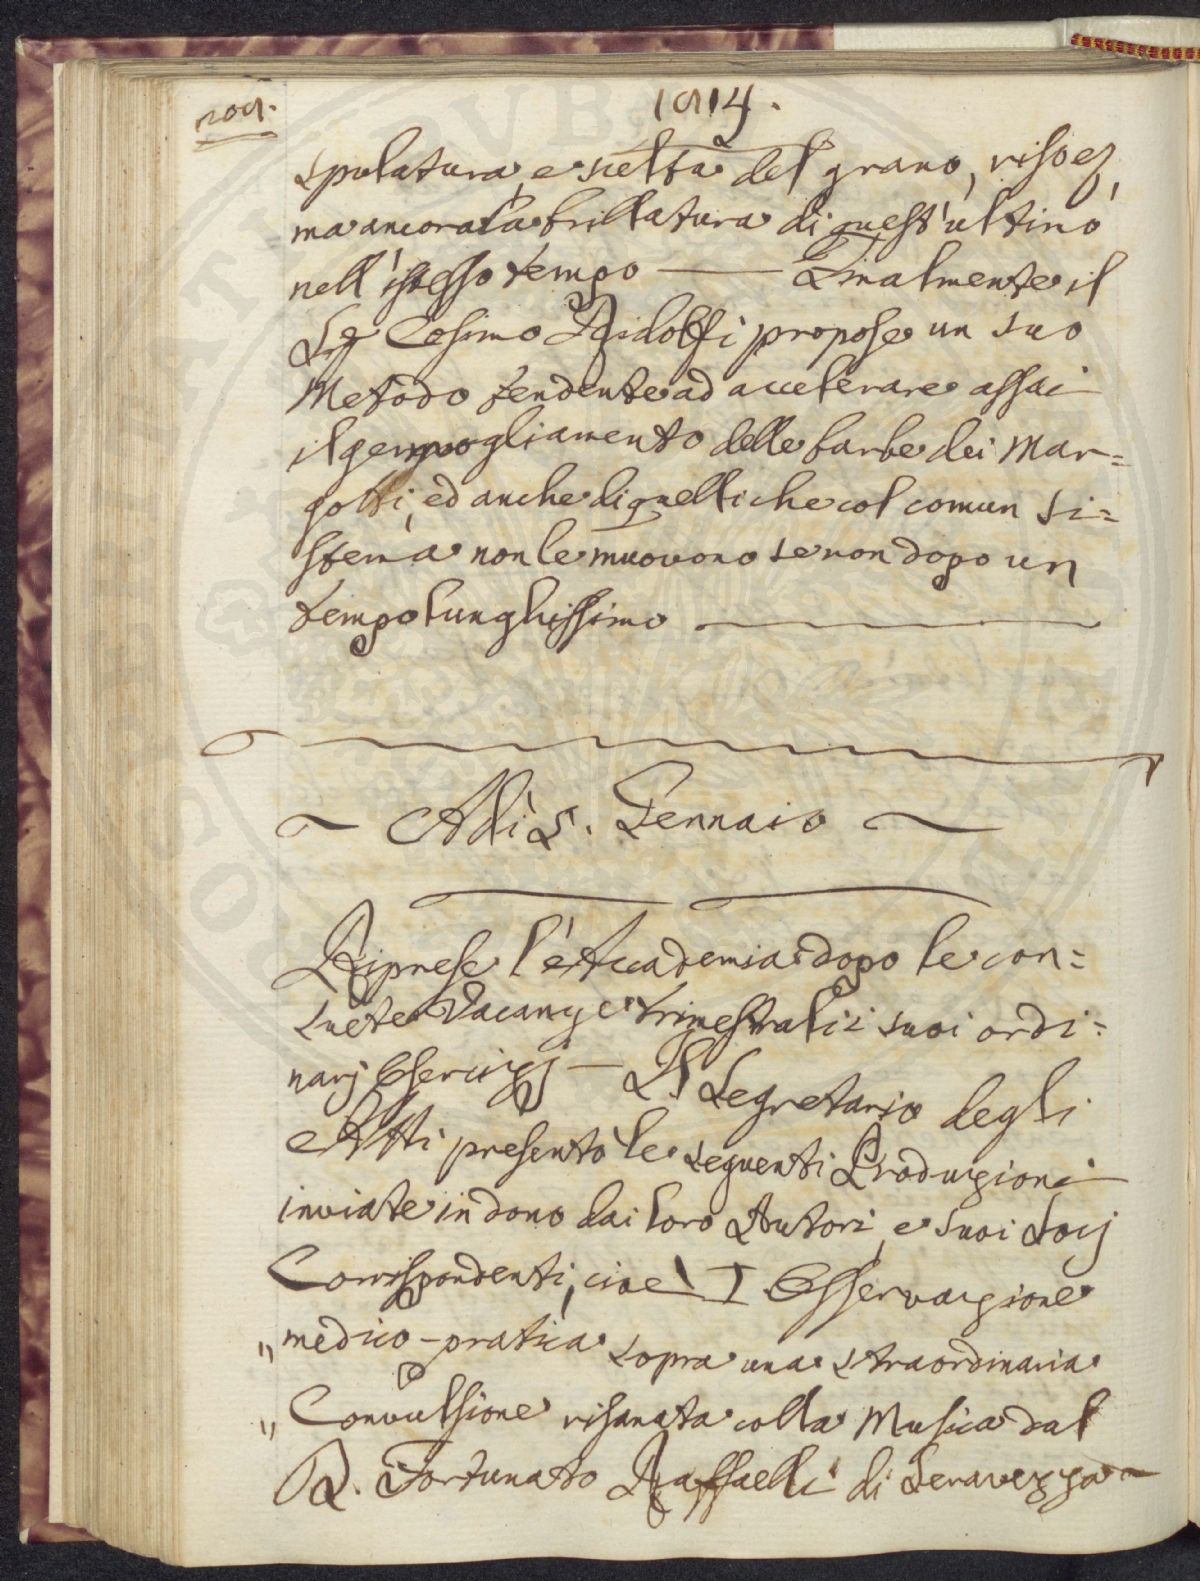 209.
1814.
spulatura, e scelta del grano, riso ec,
ma ancora la brillatura di quest'ultimo
nell'istesso tempo — Finalmente il
Sig Cosimo Ridolfi propose un suo
Metodo tendente ad accelerare assai
il germogliamento delle barbe dei Mar=
gotti, ed anche di quelli che col comun si=
stema non le muovono se non dopo un
tempo lunghissimo —
~ Adì 5. Gennaio ~
Riprese l'Accademia dopo le con=
suete Vacanze trimestrali i suoi ordi=
narj Esercizj — Il Segretario degli
Atti presentò le seguenti Produzioni
inviate in dono dai loro Autori, e suoi Socj
Corrispondenti, cioè I. Osservazione
" medico-pratica sopra una straordinaria
" Convulsione risanata colla Musica dal
D. Fortunato Raffaelli di Seravezza —